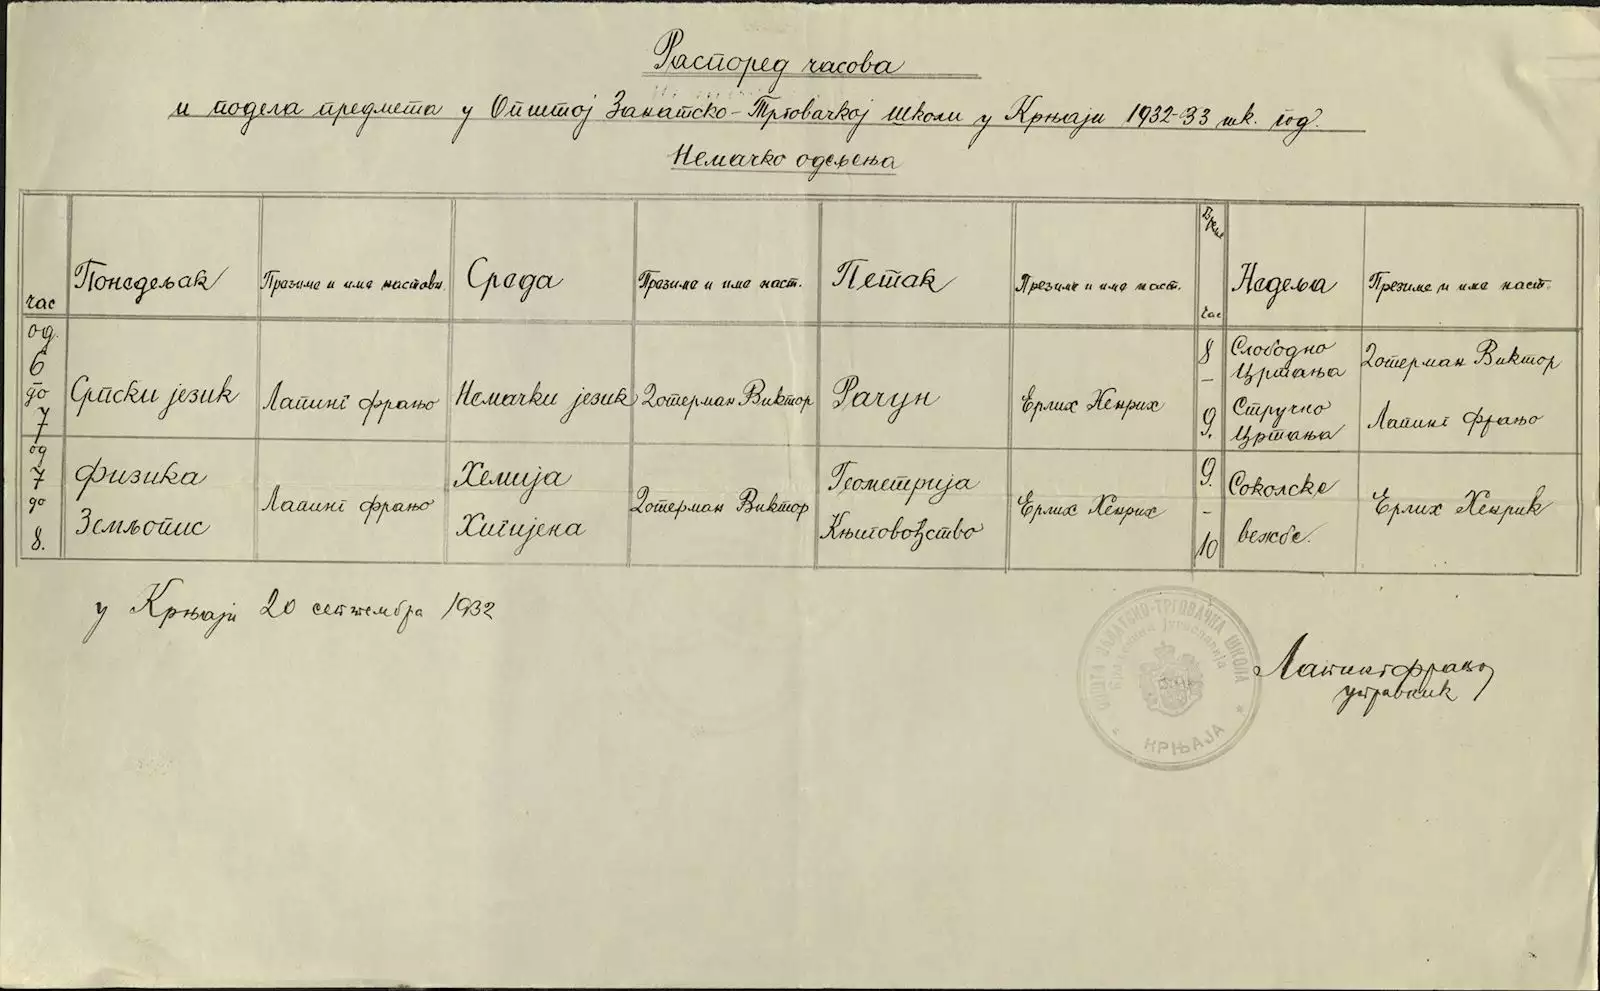 Распоред часова
и подела предмета у Општој Занатско-Трговачкој школи у Крњаји 1932-33 шк. год.
Немачко одељења
час
Понедељак
Презиме и име наставн.
Среда
Презиме и име наст.
Петак
Презиме и име наст.
Време
час
Недеља
Презиме и име наст.
од
6
до
7
Српски језик
Лапинг Фрањо
Немачки језик
Готерман Виктор
Рачун
Ерлих Хенрих
8
–
9.
Слободно
Цртања
Готерман Виктор
Стручно
Цртања
Лапинг Фрањо
од
7
до
8.
Физика
Земљопис
Лапинг Фрањо
Хемија
Хигијена
Готерман Виктор
Геометрија
Књиговођство
Ерлих Хенрих
9.
–
10
Соколске
вежбе.
Ерлих Хенрик
у Крњаји 20 септембра 1932
ОПШТА ЗАНАТСКО-ТРГОВАЧКА ШКОЛА
Краљевина Југославија
КРЊАЈА
Лапинг Фрањо
управник